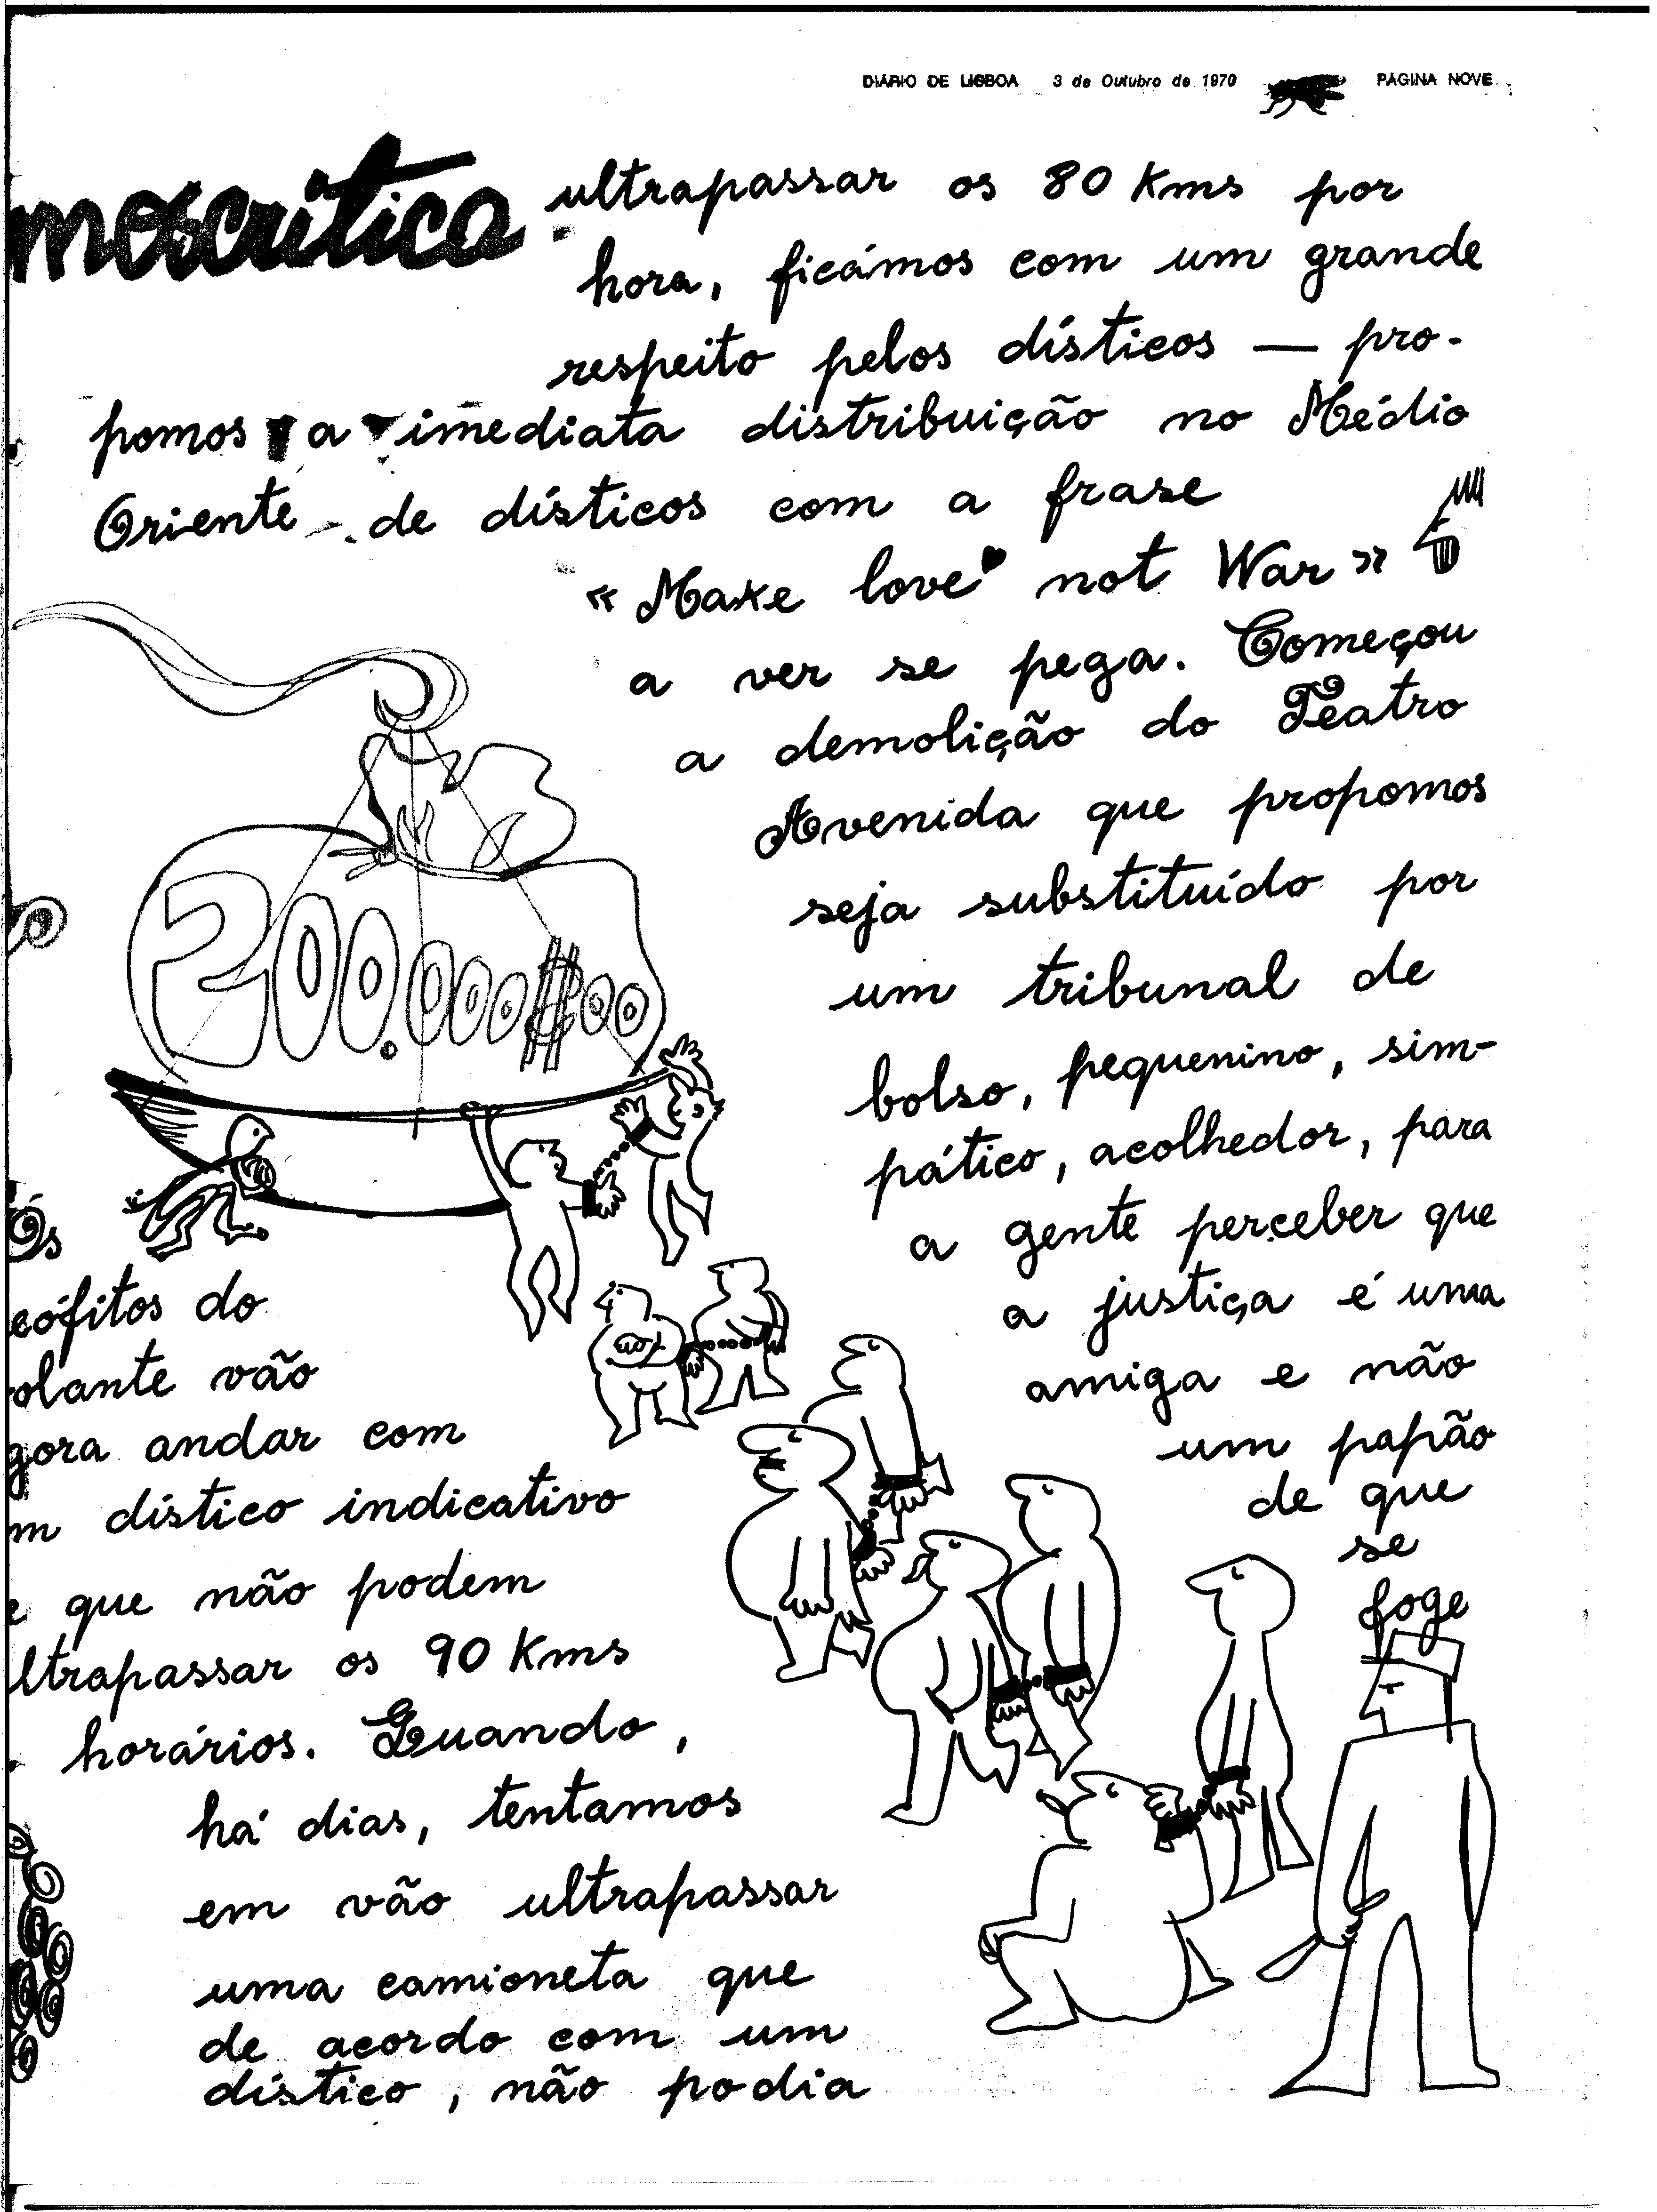 DIÁRIO DE LISBOA 3 de Outubro de 1970 PÁGINA NOVE
moscrítica
200.000$00
Os
eófitos do
olante vão
gora andar com
m dístico indicativo
e que não podem
ltrapassar os 90 Kms
horários. Quando,
há dias, tentamos
em vão ultrapassar
uma camioneta que
de acordo com um
dístico, não podia
ultrapassar os 80 Kms por
hora, ficámos com um grande
respeito pelos dísticos — pro-
pomos a imediata distribuição no Médio
Oriente de dísticos com a frase
«Make love not War»
a ver se pega. Começou
a demolição do Teatro
Avenida que propomos
seja substituído por
um tribunal de
bolso, pequenino, sim-
pático, acolhedor, para
a gente perceber que
a justiça é uma
amiga e não
um papão
de que
se
foge